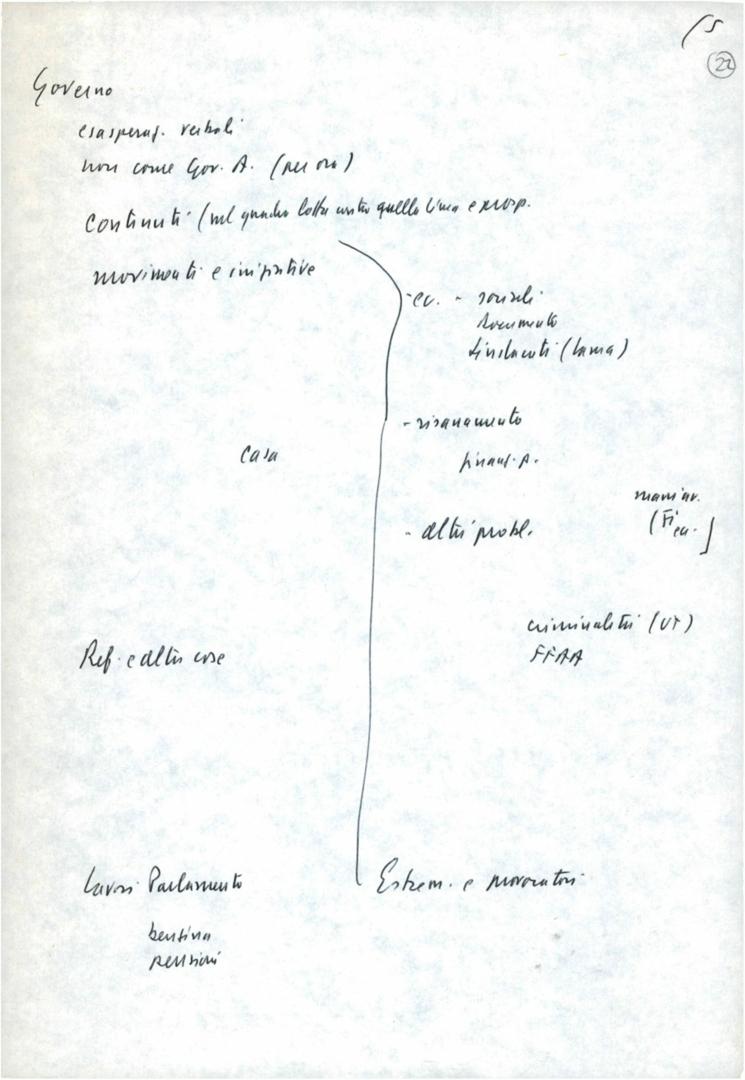 15
22
Governo
esasperaz. verbali
non come Gov. A. (per ora)
Contenuti (nel quadro lotta contro quella linea e prosp.
movimenti e iniziative
- ec. -
documento
sindacati (Lama)
- risanamento
Casa
finanz. p.
- altri probl.
criminalità
FFAA
Ref. e altre cose
Lavori Parlamento
Estrem. e provocatori
benzina
pensioni